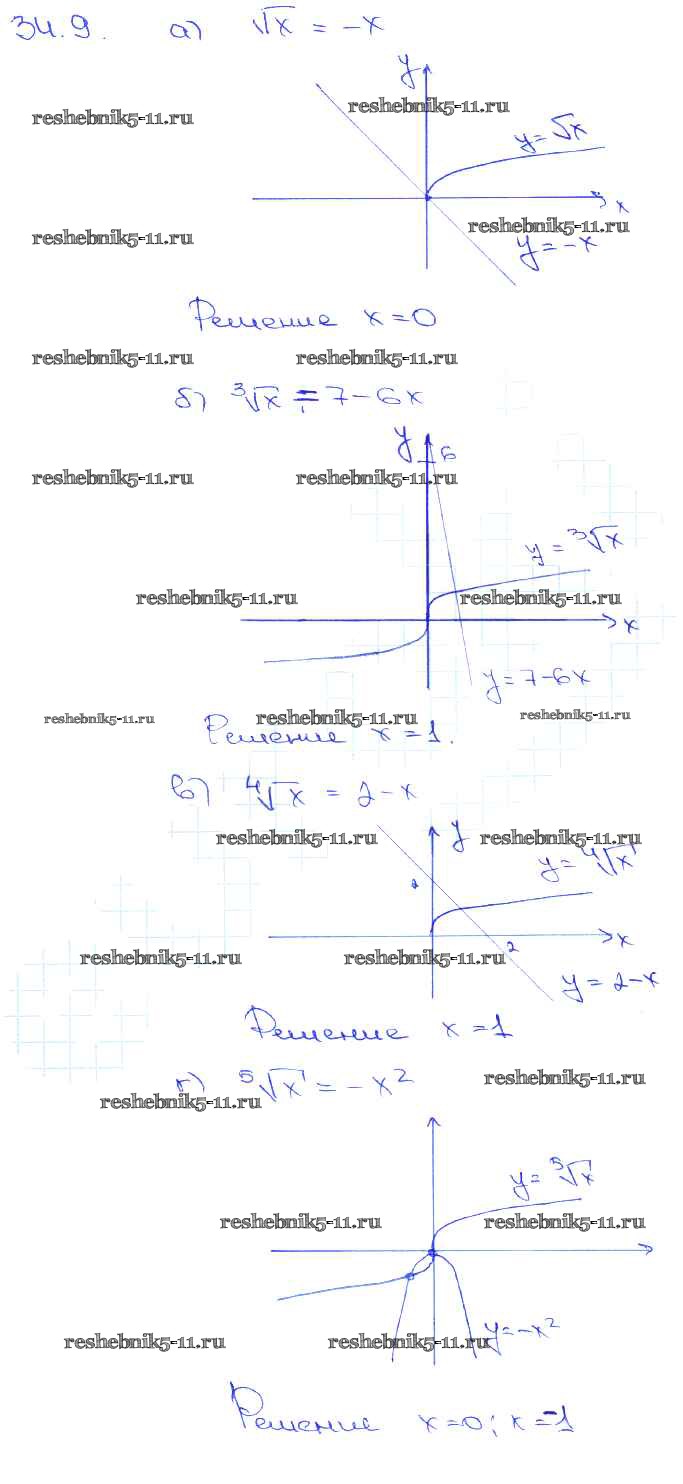 34.9. а) √x = -x
y
reshebnik5-11.ru reshebnik5-11.ru
y=√x
x
reshebnik5-11.ru reshebnik5-11.ru
y=-x
Решение x=0
reshebnik5-11.ru reshebnik5-11.ru
б) ³√x = 7-6x
y 6
reshebnik5-11.ru reshebnik5-11.ru
y = ³√x
reshebnik5-11.ru reshebnik5-11.ru
x
y=7-6x
reshebnik5-11.ru reshebnik5-11.ru reshebnik5-11.ru
Решение x=1.
в) ⁴√x = 2-x
y
reshebnik5-11.ru reshebnik5-11.ru
y=⁴√x
2
x
2
reshebnik5-11.ru reshebnik5-11.ru
y=2-x
Решение x=1
г) ⁵√x = -x²
reshebnik5-11.ru
reshebnik5-11.ru
y=⁵√x
reshebnik5-11.ru reshebnik5-11.ru
y=-x²
reshebnik5-11.ru reshebnik5-11.ru
Решение x=0; x=-1